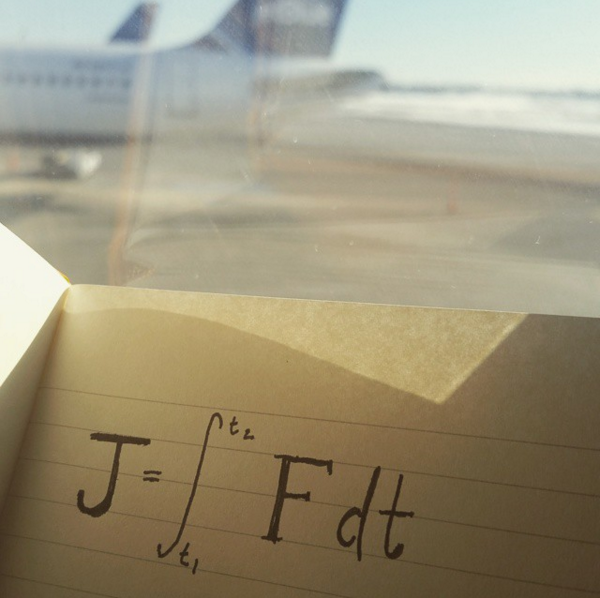 J = ∫ₜ₁ᵗ² F dt